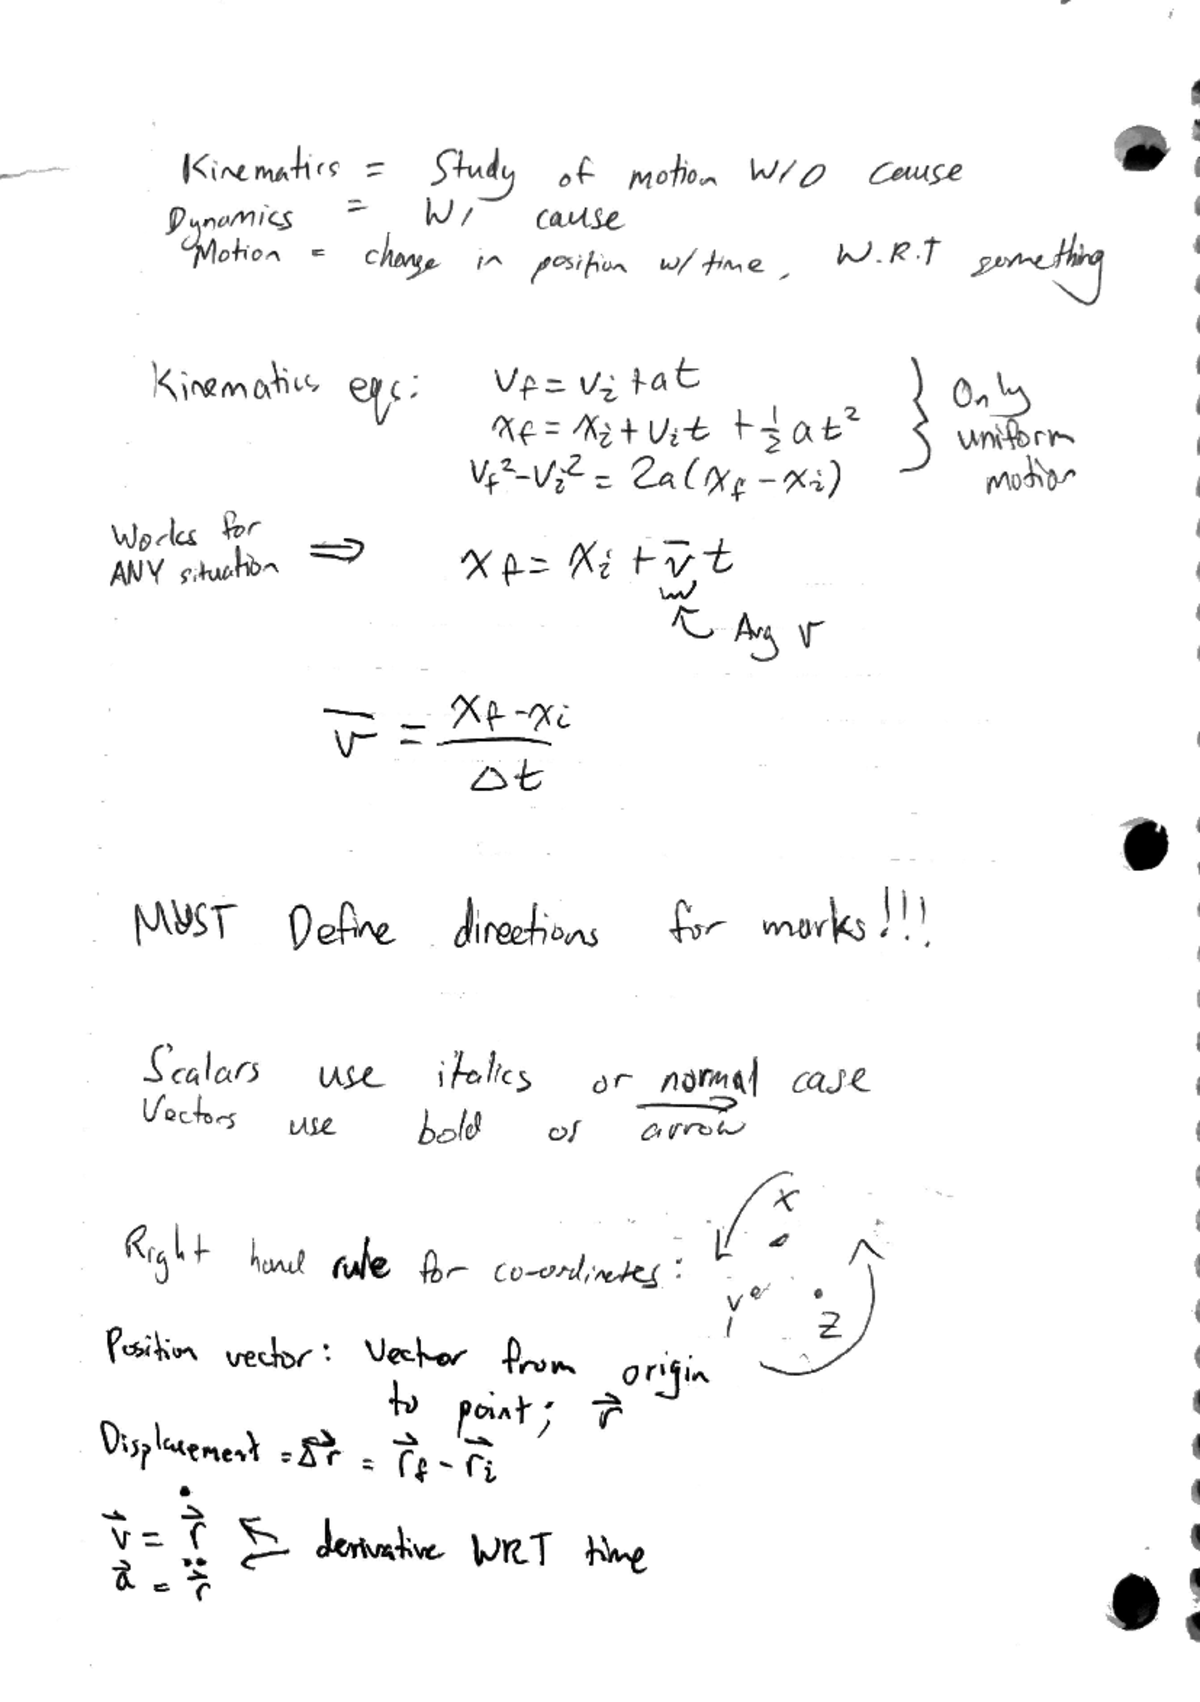 Kinematics = Study of motion W/O cause
Dynamics = W/ cause
Motion = change in position w/ time, W.R.T something
Kinematics eqs: Vf = Vi + at
xf = xi + Vit + ½at²
Vf² - Vi² = 2a(xf - xi)
} Only uniform motion
Works for ANY situation ⇒ xf = xi + v̄t
↖ Avg v
v̄ = (xf - xi) / Δt
MUST Define directions for marks!!!
Scalars use italics or normal case
Vectors use bold or arrow
Right hand rule for co-ordinates: X Y Z
Position vector: Vector from origin
to point; r⃗
Displacement = Δr⃗ = r⃗f - r⃗i
v⃗ = ṙ⃗ ⇐ derivative WRT time
a⃗ = r̈⃗